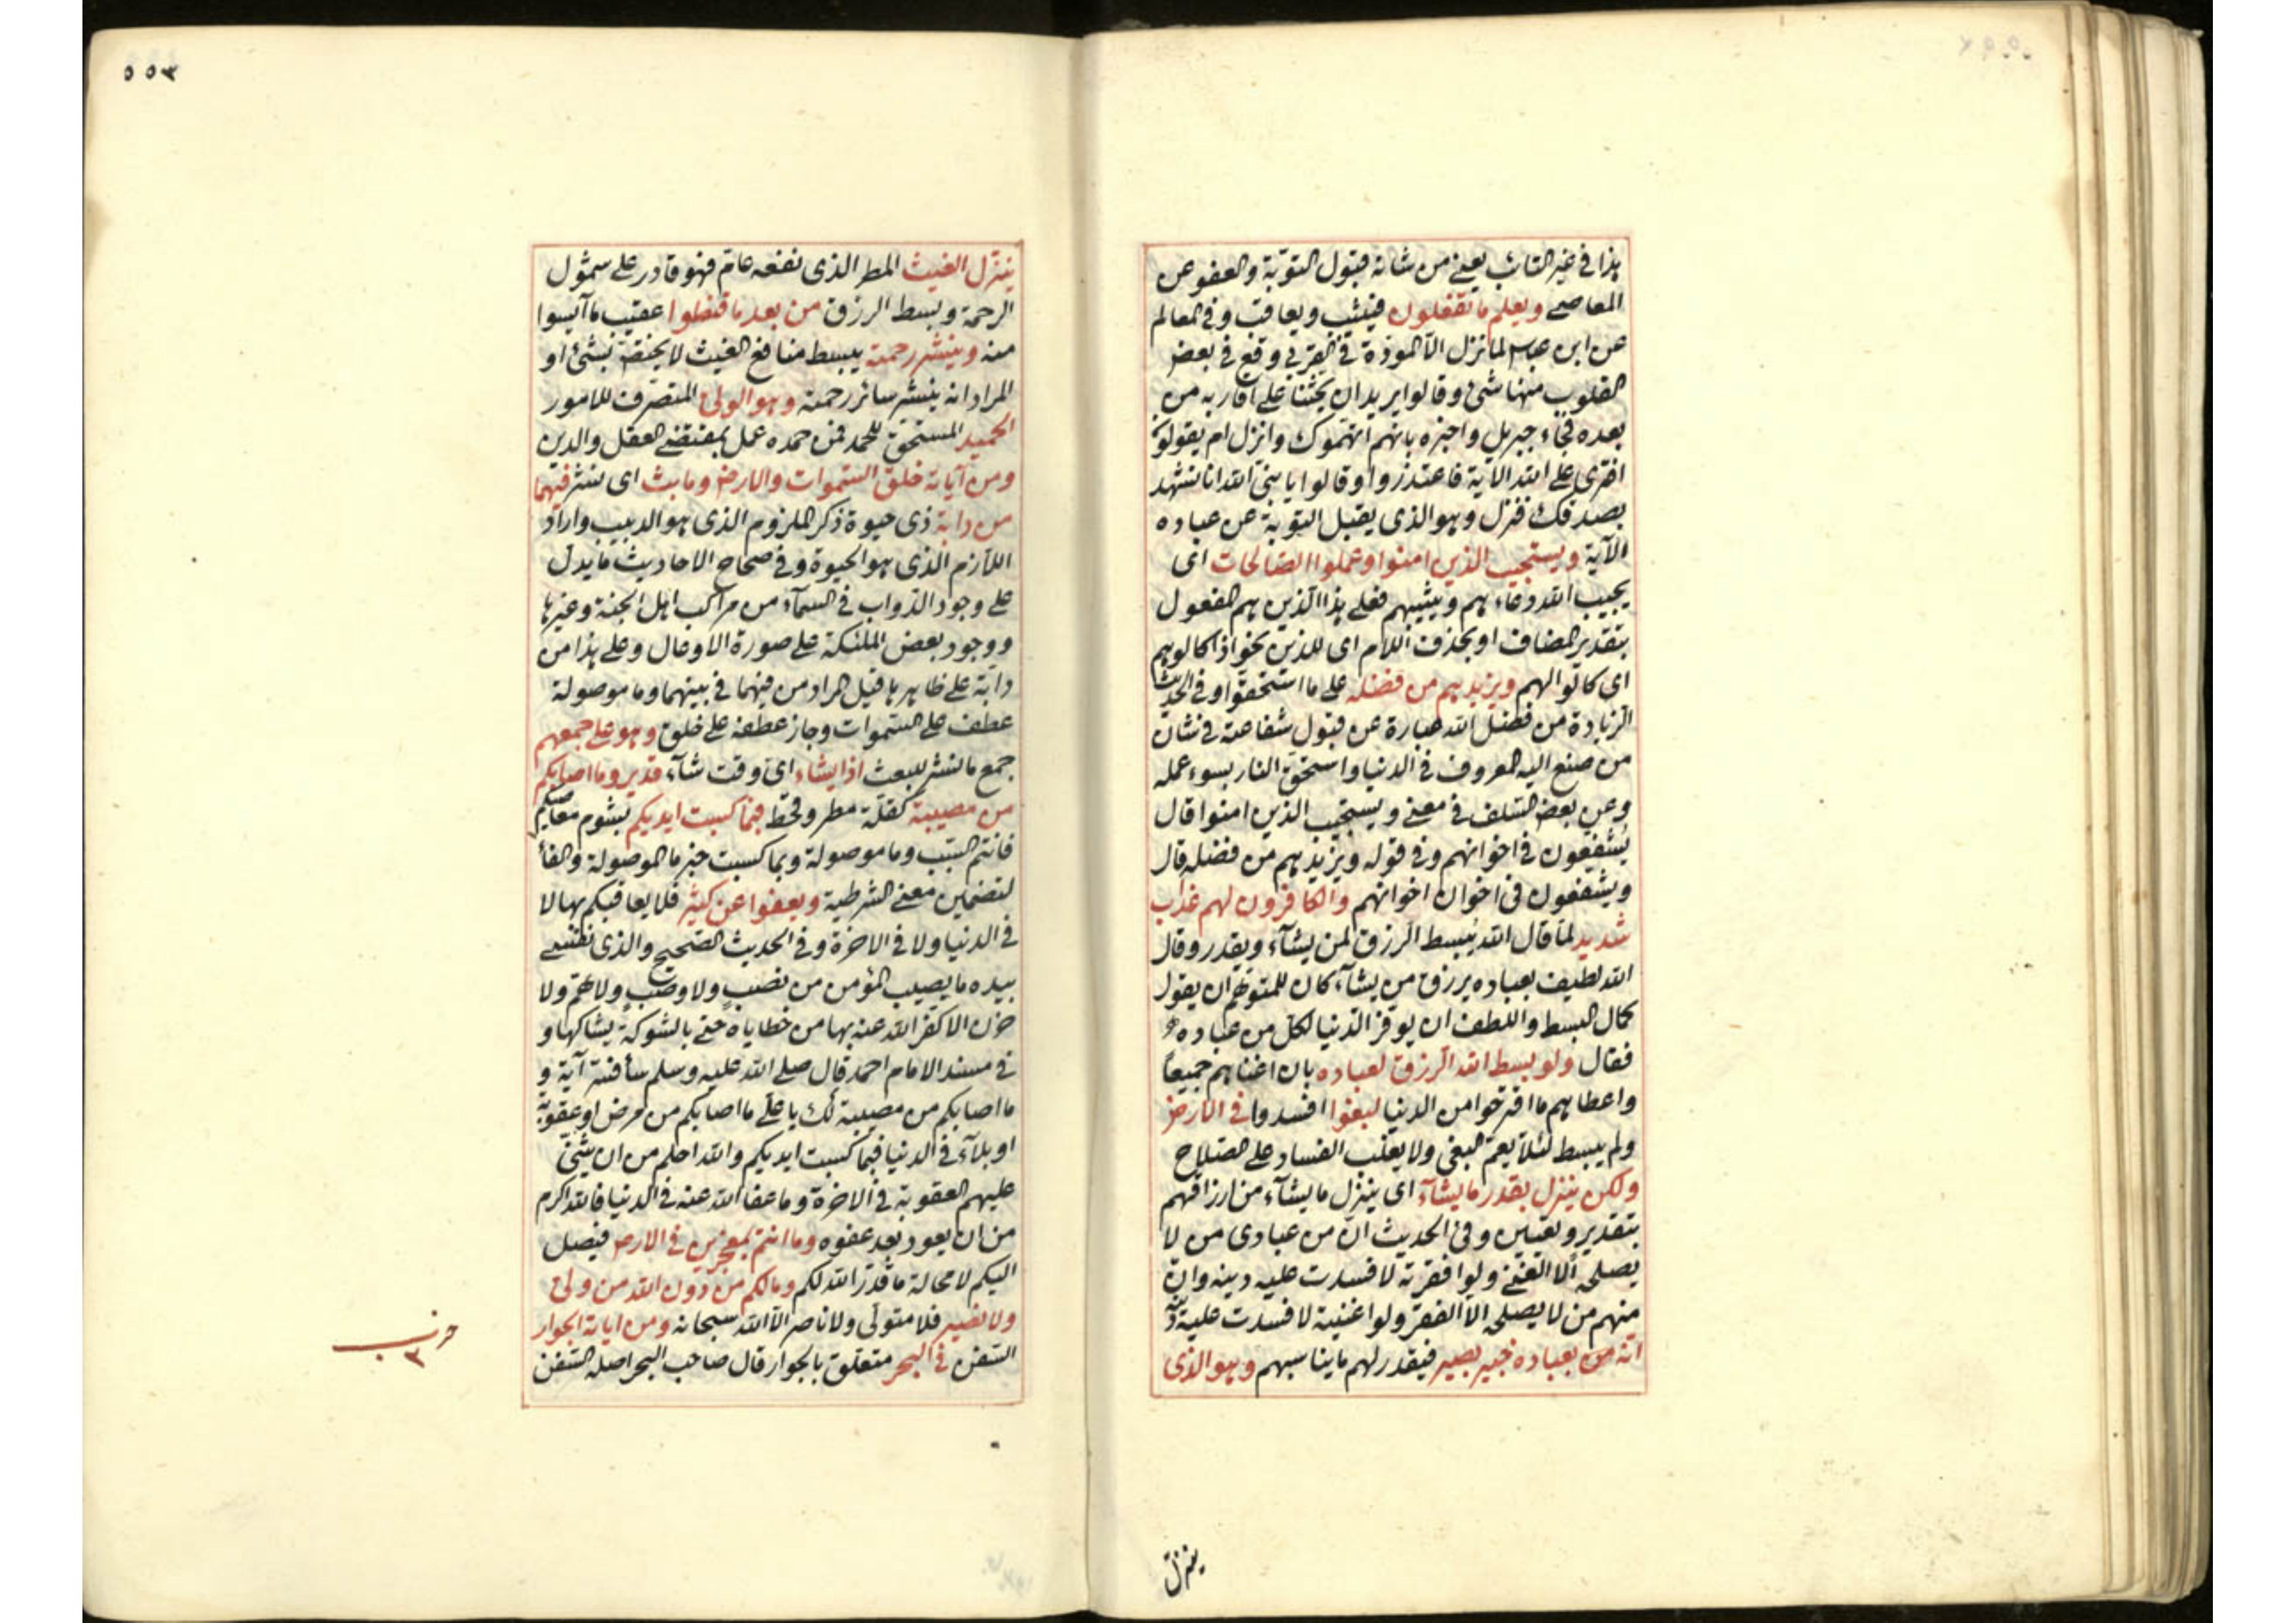 هذا في غير التائب يعني من شانه قبول التوبة والعفو عن
المعاصي ويعلم ما تفعلون فيثيب ويعاقب وفي المعالم
عن ابن عباس لما نزل الا المودة في القربى وقع في بعض
القلوب منها شئ وقالوا يريد ان يحثنا على اقاربه من
بعده فجاء جبريل واخبره بانهم اتهموك وانزل ام يقولون
افترى على الله الآية فاعتذروا وقالوا يا نبي الله انا نشهد
بصدقك فنزل وهو الذي يقبل التوبة عن عباده
الآية ويستجيب الذين امنوا وعملوا الصالحات اى
يجيب الله دعاءهم ويثيبهم فعلى هذا الذين هم المفعول
بتقدير المضاف او بحذف اللام اى للذين نحو اذا كالوهم
اى كالوا لهم ويزيدهم من فضله على ما استحقوا وفي الحديث
الزيادة من فضل الله عبارة عن قبول شفاعته في شان
من صنع اليه المعروف في الدنيا واستحق النار بسوء عمله
وعن بعض السلف في معنى ويستجيب الذين امنوا قال
يشفعون في اخوانهم وفي قوله ويزيدهم من فضله قال
ويشفعون في اخوان اخوانهم والكافرون لهم عذاب
شديد لما قال الله يبسط الرزق لمن يشآء ويقدر وقال
الله لطيف بعباده يرزق من يشآء كان للمتوهم ان يقول
كمال البسط واللطف ان يوفر الدنيا لكل من عباده
فقال ولو بسط الله الرزق لعباده بان اغناهم جميعا
واعطاهم ما اقترحوا من الدنيا لبغوا افسدوا في الارض
ولم يبسط لئلا يعم البغي ولا يغلب الفساد على الصلاح
ولكن ينزل بقدر ما يشآء اى ينزل ما يشآء من ارزاقهم
بتقدير وتعيين وفي الحديث ان من عبادي من لا
يصلحه الا الغنى ولو افقرته لافسدت عليه دينه وان
منهم من لا يصلحه الا الفقر ولو اغنيته لافسدت عليه دينه
انه بعباده خبير بصير فيقدر لهم ما يناسبهم وهو الذي
ينزل
٥٥٣
ينزل الغيث المطر الذى نفعه عام فهو قادر على شمول
الرحمة وبسط الرزق من بعد ما قنطوا عقيب ما آيسوا
منه وينشر رحمته يبسط منافع الغيث لا يختص بشئ او
المراد انه ينشر سائر رحمته وهو الولي المتصرف للامور
الحميد المستحق للحمد فمن حمده عمل بمقتضى العقل والدين
ومن آياته خلق السموات والارض وما بث اى نشر فيهما
من دابة ذى حيوة ذكر الملزوم الذى هو الدبيب واراد
اللازم الذى هو الحيوة وفي صحاح الاحاديث ما يدل
على وجود الدواب في السمآء من مراكب اهل الجنة وغيرها
ووجود بعض الملئكة على صورة الاوعال وعلى هذا من
دابة على ظاهرها قيل المراد من فيهما في بينهما وما موصولة
عطف على السموات وجاز عطفه على خلق وهو على جمعهم
جمع ما نشر للبعث اذا يشاء اى وقت شآء قدير وما اصابكم
من مصيبة كقلة مطر وقحط فبما كسبت ايديكم بشوم معاصيكم
فانتم السبب وما موصولة وبما كسبت خبر ما الموصولة والفا
لتضمين معنى الشرطية ويعفوا عن كثير فلا يعاقبكم بها لا
في الدنيا ولا في الاخرة وفي الحديث الصحيح والذى نفسي
بيده ما يصيب المؤمن من نصب ولا وصب ولا هم ولا
حزن الا كفر الله عنه بها من خطاياه حتى بالشوكة يشاكها و
في مسند الامام احمد قال صلى الله عليه وسلم سأفسر آية و
ما اصابكم من مصيبة لك يا على ما اصابكم من مرض او عقوبة
او بلآء في الدنيا فبما كسبت ايديكم والله احلم من ان يثني
عليهم العقوبة في الاخرة وما عفا الله عنه في الدنيا فالله اكرم
من ان يعود بعد عفوه وما انتم بمعجزين في الارض فيصل
اليكم لا محالة ما قدر الله لكم وما لكم من دون الله من ولي
ولا نصير فلا متولى ولا ناصر الا الله سبحانه ومن اياته الجوار
السفن في البحر متعلق بالجوار قال صاحب البحر اصله السفن
حزب
٣